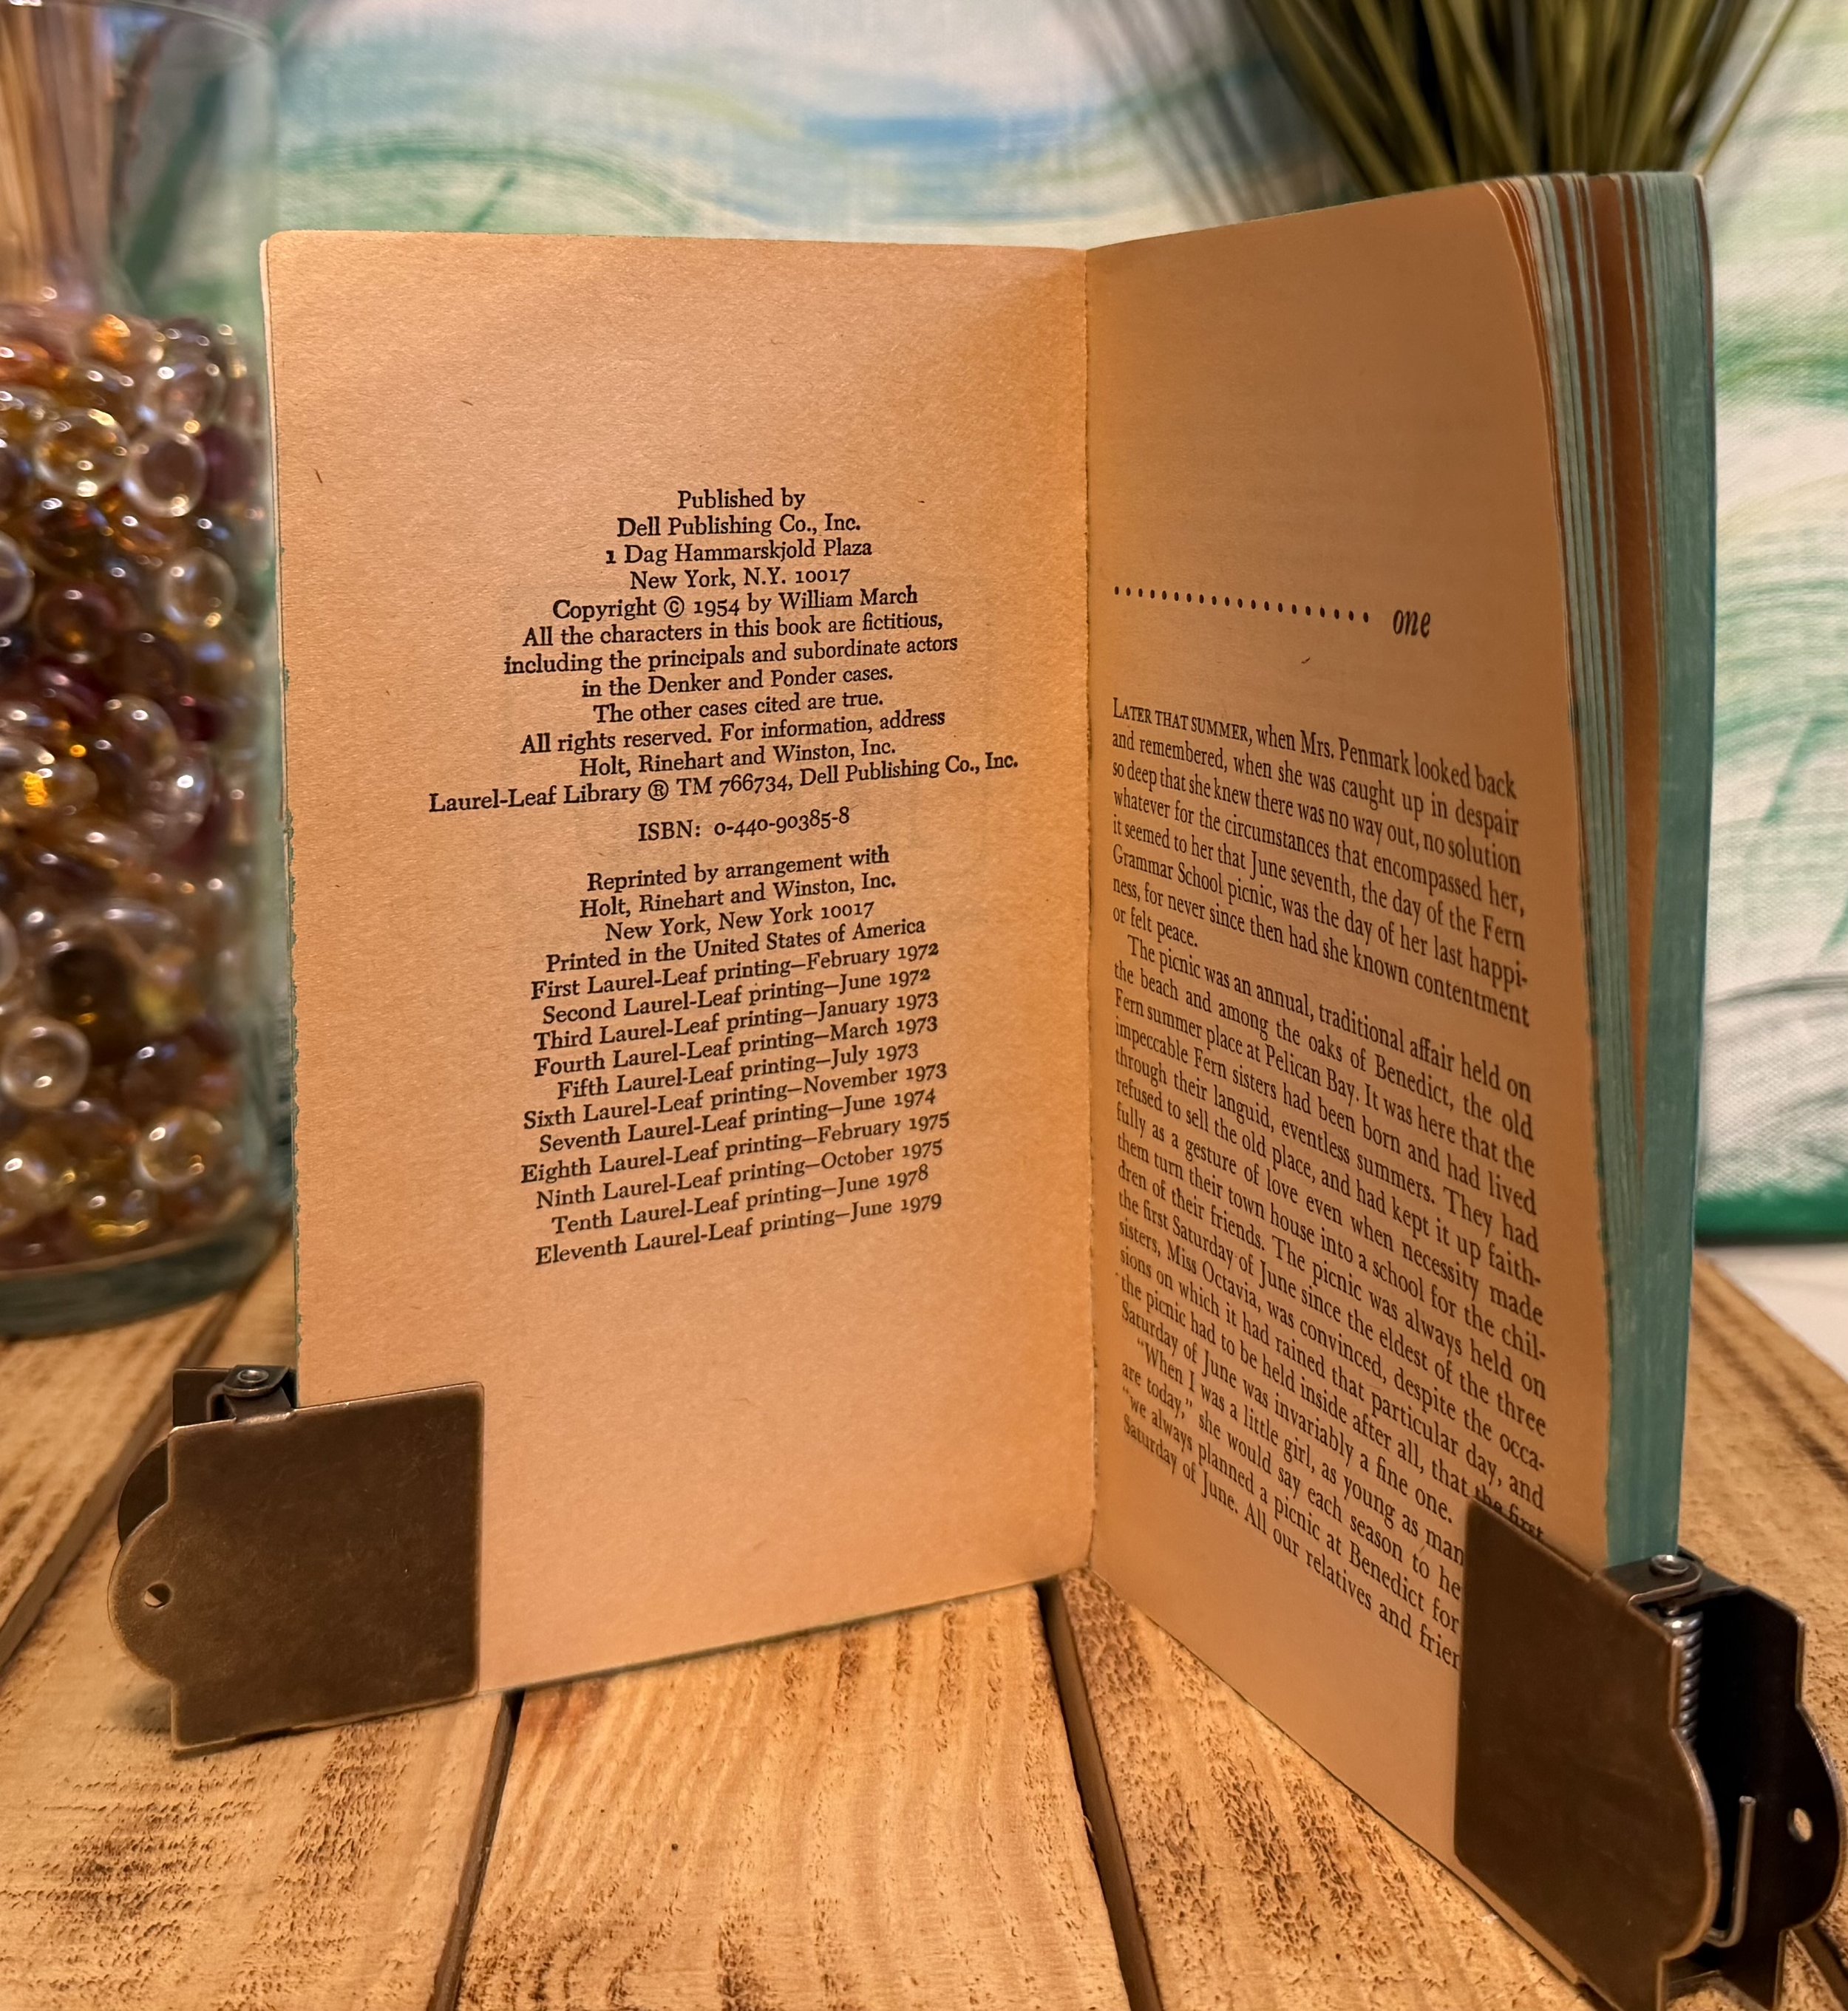 Published by
Dell Publishing Co., Inc.
1 Dag Hammarskjold Plaza
New York, N.Y. 10017
Copyright © 1954 by William March
All the characters in this book are fictitious,
including the principals and subordinate actors
in the Denker and Ponder cases.
The other cases cited are true.
All rights reserved. For information, address
Holt, Rinehart and Winston, Inc.
Laurel-Leaf Library ® TM 766734, Dell Publishing Co., Inc.
ISBN: 0-440-90385-8
Reprinted by arrangement with
Holt, Rinehart and Winston, Inc.
New York, New York 10017
Printed in the United States of America
First Laurel-Leaf printing—February 1972
Second Laurel-Leaf printing—June 1972
Third Laurel-Leaf printing—January 1973
Fourth Laurel-Leaf printing—March 1973
Fifth Laurel-Leaf printing—July 1973
Sixth Laurel-Leaf printing—November 1973
Seventh Laurel-Leaf printing—June 1974
Eighth Laurel-Leaf printing—February 1975
Ninth Laurel-Leaf printing—October 1975
Tenth Laurel-Leaf printing—June 1978
Eleventh Laurel-Leaf printing—June 1979
...................... one
LATER THAT SUMMER, when Mrs. Penmark looked back
and remembered, when she was caught up in despair
so deep that she knew there was no way out, no solution
whatever for the circumstances that encompassed her,
it seemed to her that June seventh, the day of the Fern
Grammar School picnic, was the day of her last happi-
ness, for never since then had she known contentment
or felt peace.
The picnic was an annual, traditional affair held on
the beach and among the oaks of Benedict, the old
Fern summer place at Pelican Bay. It was here that the
impeccable Fern sisters had been born and had lived
through their languid, eventless summers. They had
refused to sell the old place, and had kept it up faith-
fully as a gesture of love even when necessity made
them turn their town house into a school for the chil-
dren of their friends. The picnic was always held on
the first Saturday of June since the eldest of the three
sisters, Miss Octavia, was convinced, despite the occa-
sions on which it had rained that particular day, and
the picnic had to be held inside after all, that the first
Saturday of June was invariably a fine one.
"When I was a little girl, as young as man
are today," she would say each season to he
"we always planned a picnic at Benedict for
Saturday of June. All our relatives and frier